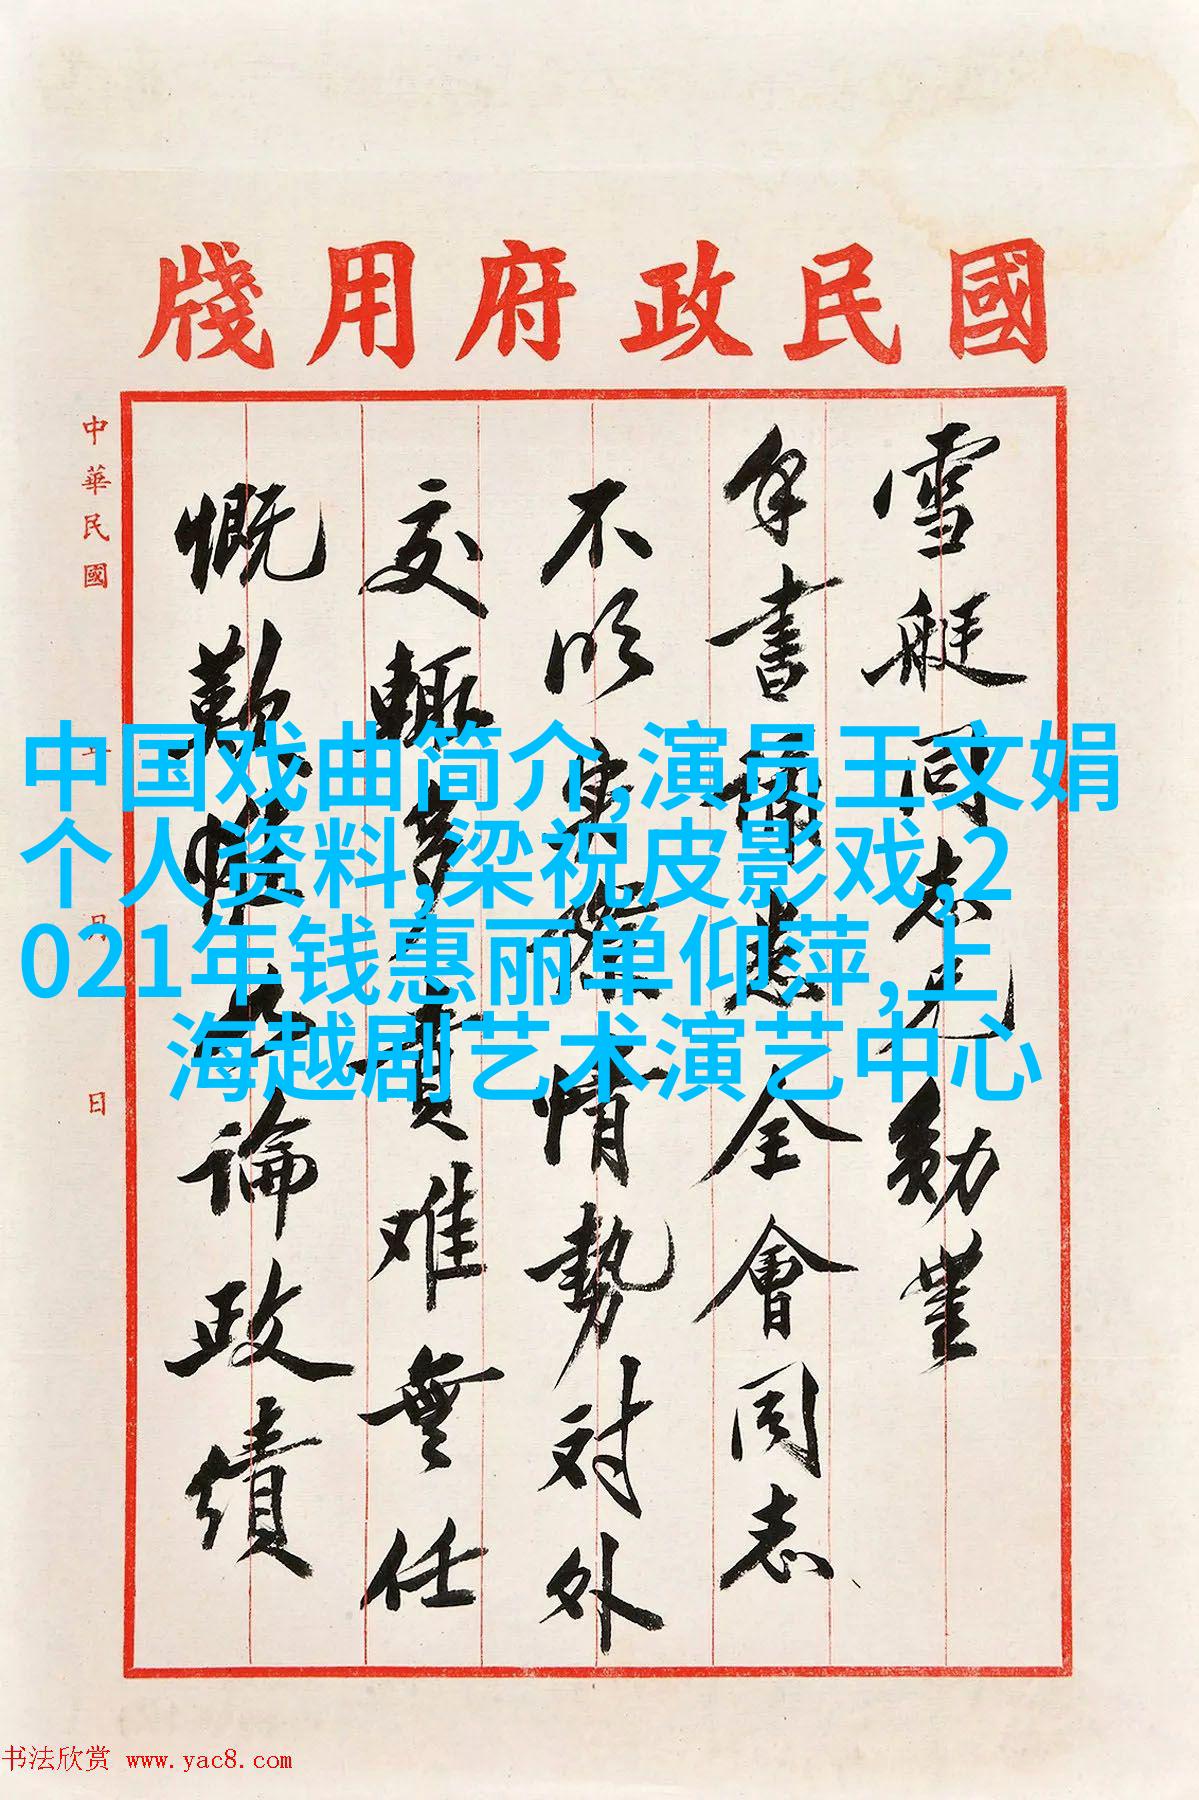 國民政府用牋
雪艇同志兄勛鑒
手書誦悉全會同志
不明實際情勢对外
交輒多責难無任
慨歎惟 論政績
中華民國 年 月 日
中国戏曲简介,演员王文娟
个人资料,梁祝皮影戏,2
021年钱惠丽单仰萍,上
海越剧艺术演艺中心
书法欣赏 www.yac8.com